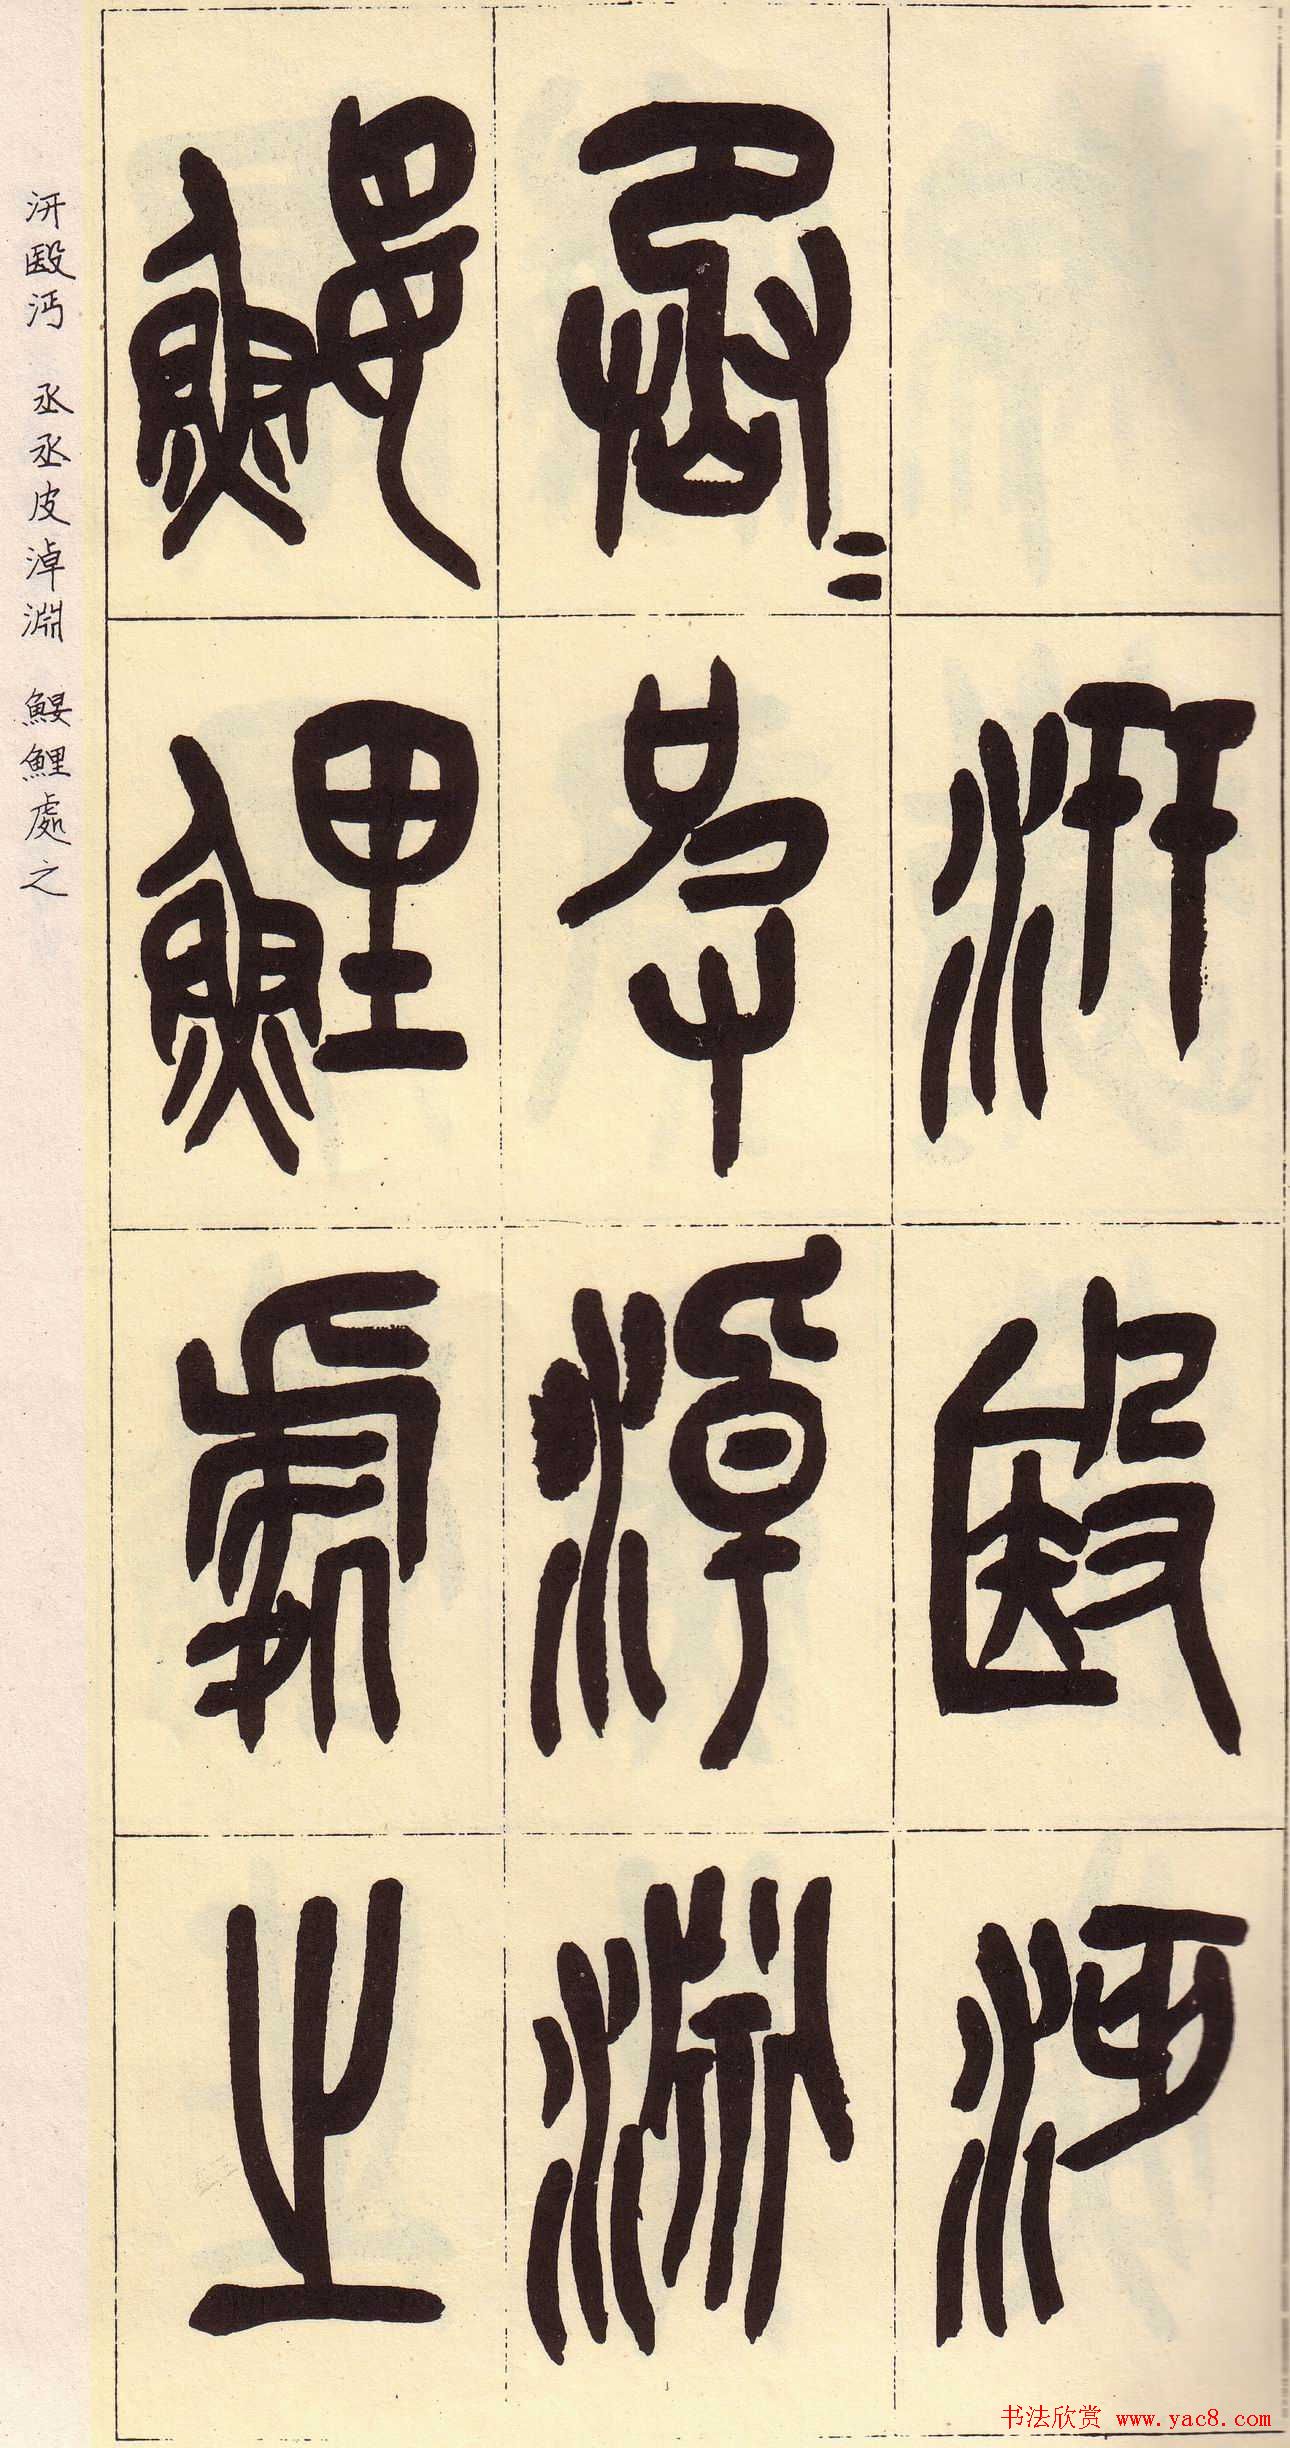 汧殹沔
丞=皮淖淵
鰋鯉處之
汧殹沔 丞丞皮淖淵 鰋鯉處之
书法欣赏 www.yac8.com